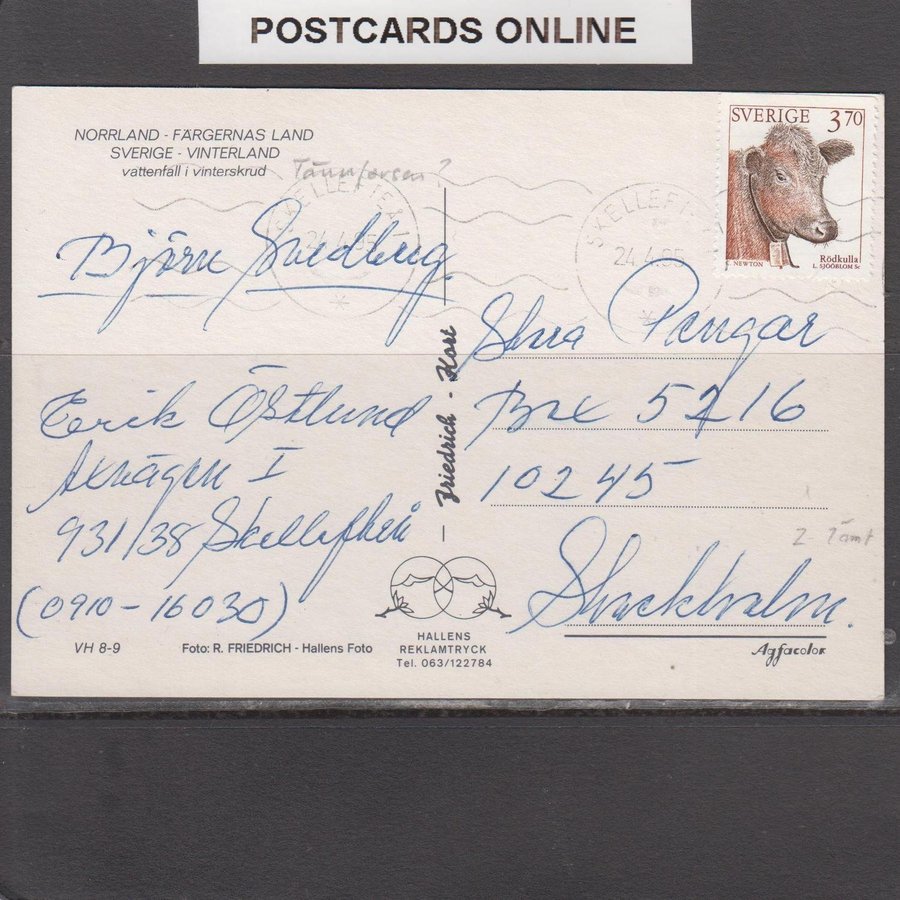 POSTCARDS ONLINE
NORRLAND - FÄRGERNAS LAND
SVERIGE - VINTERLAND
vattenfall i vinterskrud
Tännforsen?
SKELLEFTEÅ
24.4.95
SKELLEFTEÅ
24.4.95
SVERIGE 3.70
C. NEWTON
Rödkulla
L. SJÖÖBLOM Sc
Björn Svedberg
Erik Östlund
Axvägen 1
931/38 Skellefteå
(0910-16030)
Friedrich - Kort
Stora Pengar
Box 5216
10245
Stockholm.
VH 8-9
Foto: R. FRIEDRICH - Hallens Foto
HALLENS
REKLAMTRYCK
Tel. 063/122784
Agfacolor